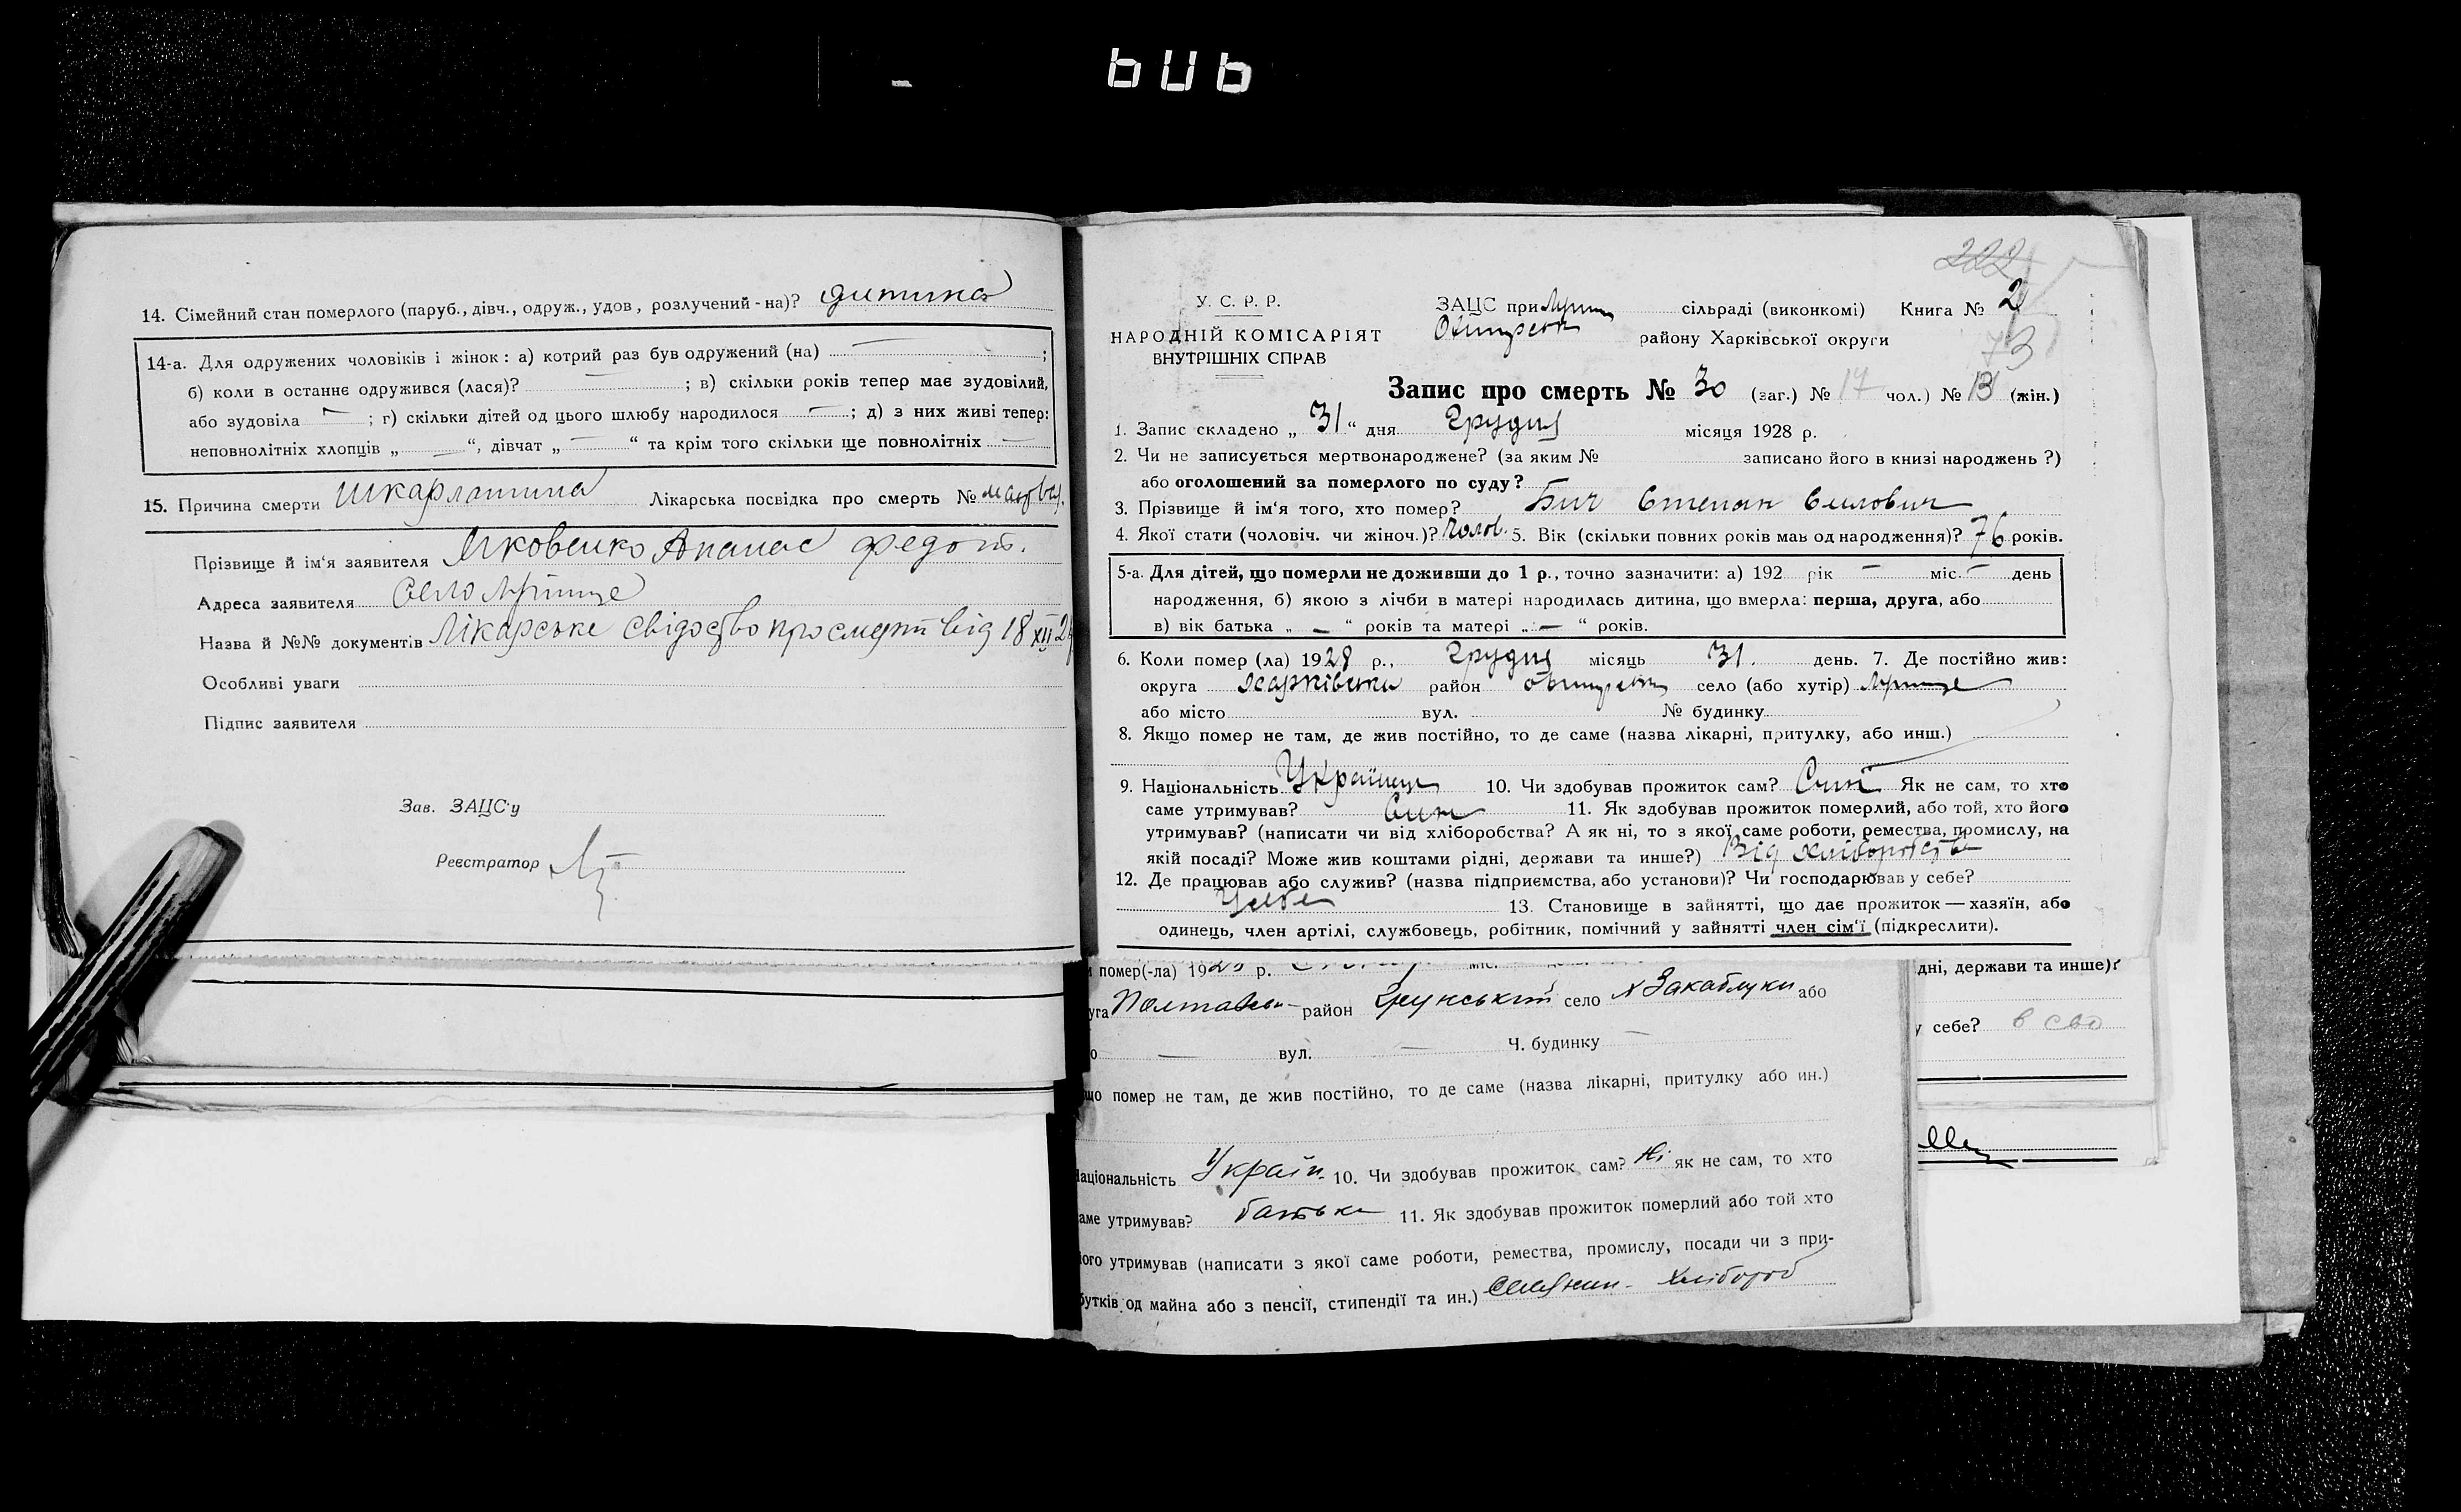 14. Сімейний стан померлого (паруб., дівч., одруж., удов, розлучений-на)? дитина
14-а. Для одружених чоловіків і жінок: а) котрий раз був одружений (на) — ;
б) коли в останнє одружився (лася)? — ; в) скільки років тепер має зудовілий,
або зудовіла — ; г) скільки дітей од цього шлюбу народилося — ; д) з них живі тепер:
неповнолітніх хлопців „ — “, дівчат „ — “ та крім того скільки ще повнолітніх —
15. Причина смерти шкарлатина Лікарська посвідка про смерть №
Прізвище й ім'я заявителя Яковенко Апанас Федот.
Адреса заявителя село
Назва й №№ документів Лікарське свідоцтво про смерть від 18 XII 28
Особливі уваги
Підпис заявителя
Зав. ЗАЦС'у
Реєстратор
222
У. С. Р. Р.
НАРОДНІЙ КОМІСАРІЯТ
ВНУТРІШНІХ СПРАВ
ЗАЦС при сільраді (виконкомі) Книга № 2
району Харківської округи
73
Запис про смерть № 30 (заг.) № 17 чол.) № 13 (жін.)
1. Запис складено „ 31 “ дня Грудня місяця 1928 р.
2. Чи не записується мертвонароджене? (за яким № записано його в книзі народжень?)
або оголошений за померлого по суду?
3. Прізвище й ім'я того, хто помер? Бич Степан
4. Якої стати (чоловіч. чи жіноч.)? Чолов. 5. Вік (скільки повних років мав од народження)? 76 років.
5-а. Для дітей, що померли не доживши до 1 р., точно зазначити: а) 192 рік — міс. — день
народження, б) якою з лічби в матері народилась дитина, що вмерла: перша, друга, або
в) вік батька „ — “ років та матері „ — “ років.
6. Коли помер (ла) 1928 р., Грудня місяць 31. день. 7. Де постійно жив:
округа Харківська район село (або хутір)
або місто вул. № будинку
8. Якщо помер не там, де жив постійно, то де саме (назва лікарні, притулку, або инш.)
9. Національність Українець 10. Чи здобував прожиток сам? Як не сам, то хто
саме утримував? Син 11. Як здобував прожиток померлий, або той, хто його
утримував? (написати чи від хліборобства? А як ні, то з якої саме роботи, ремества, промислу, на
якій посаді? Може жив коштами рідні, держави та инше?) Від хліборобства
12. Де працював або служив? (назва підприємства, або установи)? Чи господарював у себе?
У себе 13. Становище в зайнятті, що дає прожиток — хазяїн, або
одинець, член артілі, службовець, робітник, помічний у зайнятті член сім'ї (підкреслити).
помер(-ла) 1928 р. міс.
уга Полтавськ район село х Закаблуки або
о — вул. — Ч. будинку —
що помер не там, де жив постійно, то де саме (назва лікарні, притулку або ин.)
Національність Україн. 10. Чи здобував прожиток сам? Ні як не сам, то хто
саме утримував? батько 11. Як здобував прожиток померлий або той хто
його утримував (написати з якої саме роботи, ремества, промислу, посади чи з при-
бутків од майна або з пенсії, стипендії та ин.) Селянин - хлібороб
дні, держави та инше)?
у себе? в сво